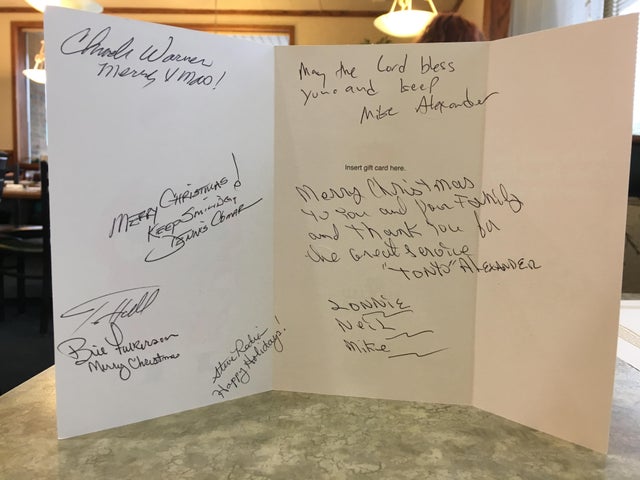 Chuck Warner
Merry Xmas!
MERRY CHRISTMAS!
KEEP SMILING,
Bill Fulkerson
Merry Christmas
Steve Rabin
Happy Holidays!
May the Lord bless
you and keep
Mike Alexander
Insert gift card here.
Merry Christmas
to you and your Family
and Thank You for
the Great Service
"TONTO" ALEXANDER
LONNIE
NEIL
Mike